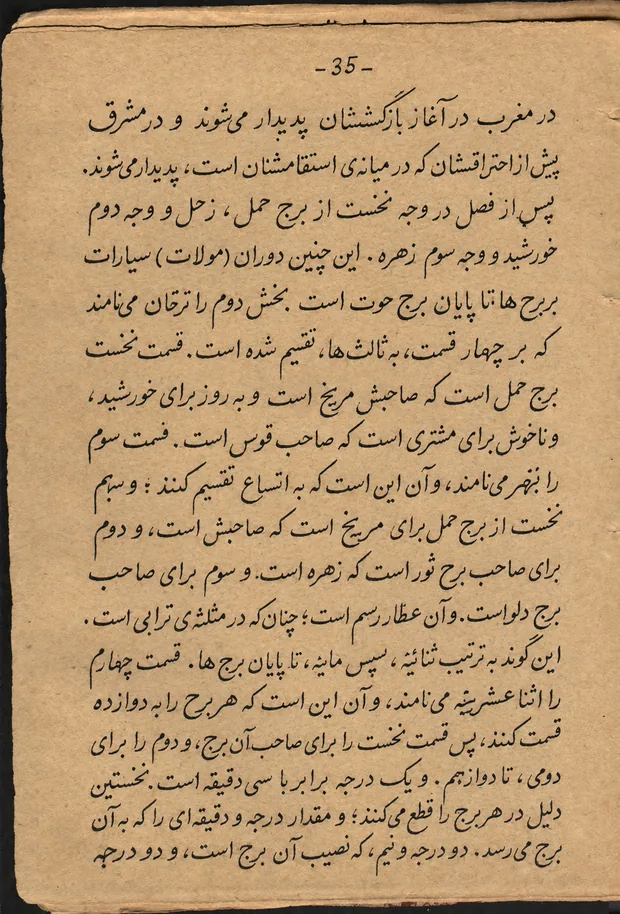 -35-
در مغرب در آغاز بازگششان پدیدار می‌شوند و در مشرق
پیش از احتراقشان که در میانه‌ی استقامشان است، پدیدار می‌شوند.
پس از فصل در وجه نخست از برج حمل، زحل و وجه دوم
خورشید و وجه سوم زهره. این چنین دوران (مولات) سیارات
بر برج ها؛ تا پایان برج حوت است. بخش دوم را ترخان می‌نامند
که بر چهار قسمت، به ثالث‌ها، تقسیم شده است. قسمت نخست
برج حمل است که صاحبش مریخ است و به روز برای خورشید،
و ناخوش برای مشتری است که صاحب قوس است. قسمت سوم
را بنهر می‌نامند، و آن این است که به اتساع تقسیم کنند؛ و سهم
نخست از برج حمل برای مریخ است که صاحبش است، و دوم
برای صاحب برج ثور است که زهره است. و سوم برای صاحب
برج دلو است. و آن عطارد رسم است؛ چنان‌که در مثلثه‌ی ترابی است.
این گوند به ترتیب ثنائیه، سپس مایئه، تا پایان برج ها. قسمت چهارم
را اثنا عشریئه می‌نامند، و آن این است که هر برج را به دوازده
قسمت کنند، پس قسمت نخست را برای صاحب آن برج، و دوم را برای
دومی، تا دوازهم. و یک درجه برابر با سی دقیقه است. نخستین
دلیل در هر برج را قطع می‌کنند؛ و مقدار درجه و دقیقه‌ای را که به آن
برج می‌رسد. دو درجه و نیم، که نصیب آن برج است، و دو درجه